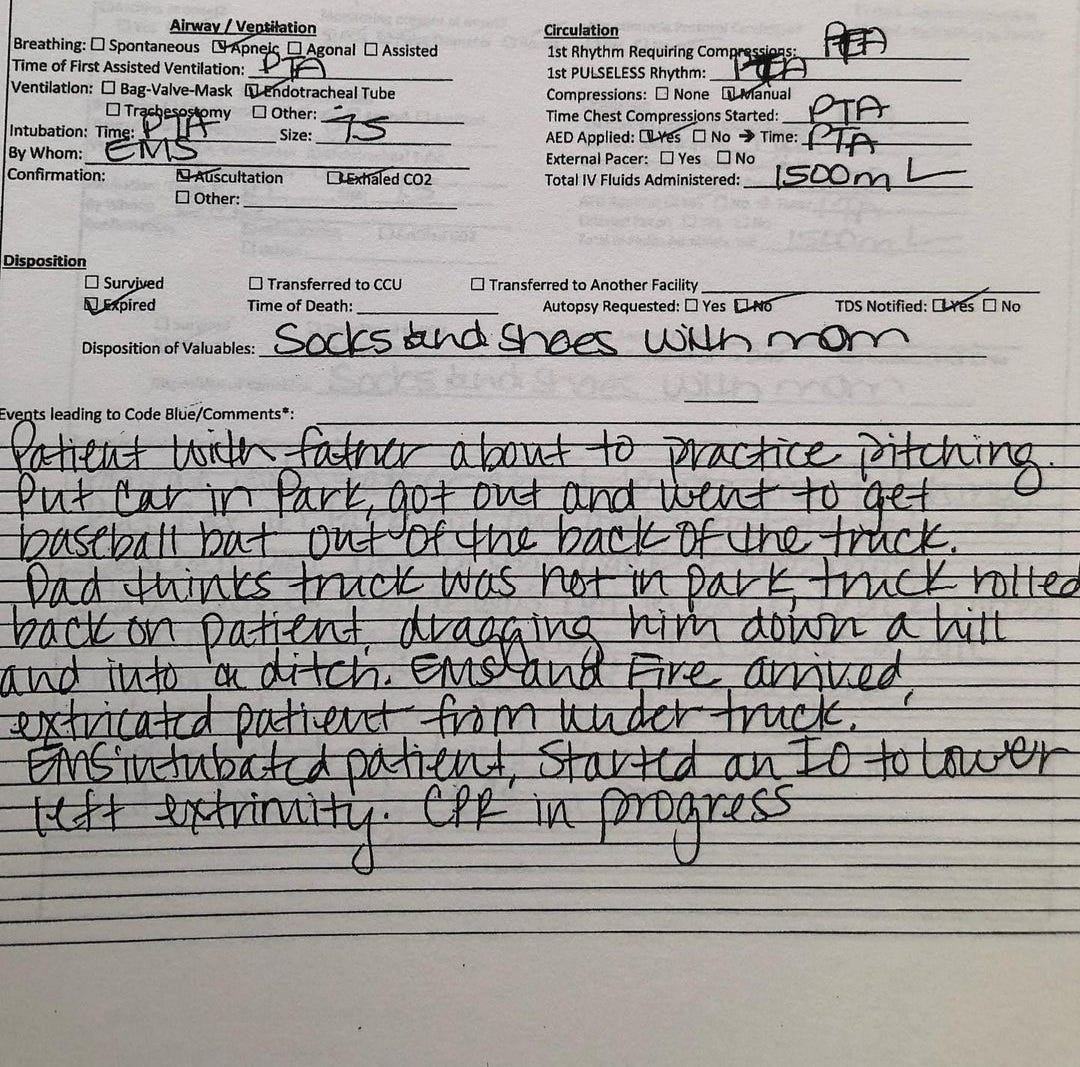 Airway / Ventilation
Breathing: ☐ Spontaneous ☑ Apneic ☐ Agonal ☐ Assisted
Time of First Assisted Ventilation: PTA
Ventilation: ☐ Bag-Valve-Mask ☑ Endotracheal Tube
☐ Tracheostomy ☐ Other:
Intubation: Time: PTA Size: 7.5
By Whom: EMS
Confirmation: ☑ Auscultation ☑ Exhaled CO2
☐ Other:
Circulation
1st Rhythm Requiring Compressions: PEA
1st PULSELESS Rhythm: PEA
Compressions: ☐ None ☑ Manual
Time Chest Compressions Started: PTA
AED Applied: ☑ Yes ☐ No → Time: PTA
External Pacer: ☐ Yes ☐ No
Total IV Fluids Administered: 1500mL
Disposition
☐ Survived ☐ Transferred to CCU ☐ Transferred to Another Facility
☑ Expired Time of Death: Autopsy Requested: ☐ Yes ☑ No TDS Notified: ☑ Yes ☐ No
Disposition of Valuables: Socks and Shoes with mom
Events leading to Code Blue/Comments*:
Patient with father about to practice pitching.
Put Car in Park, got out and went to get
baseball bat out of the back of the truck.
Dad thinks truck was not in park, truck rolled
back on patient, dragging him down a hill
and into a ditch. EMS and Fire arrived,
extricated patient from under truck.
EMS intubated patient, Started an IO to lower
left extrimity. CPR in progress